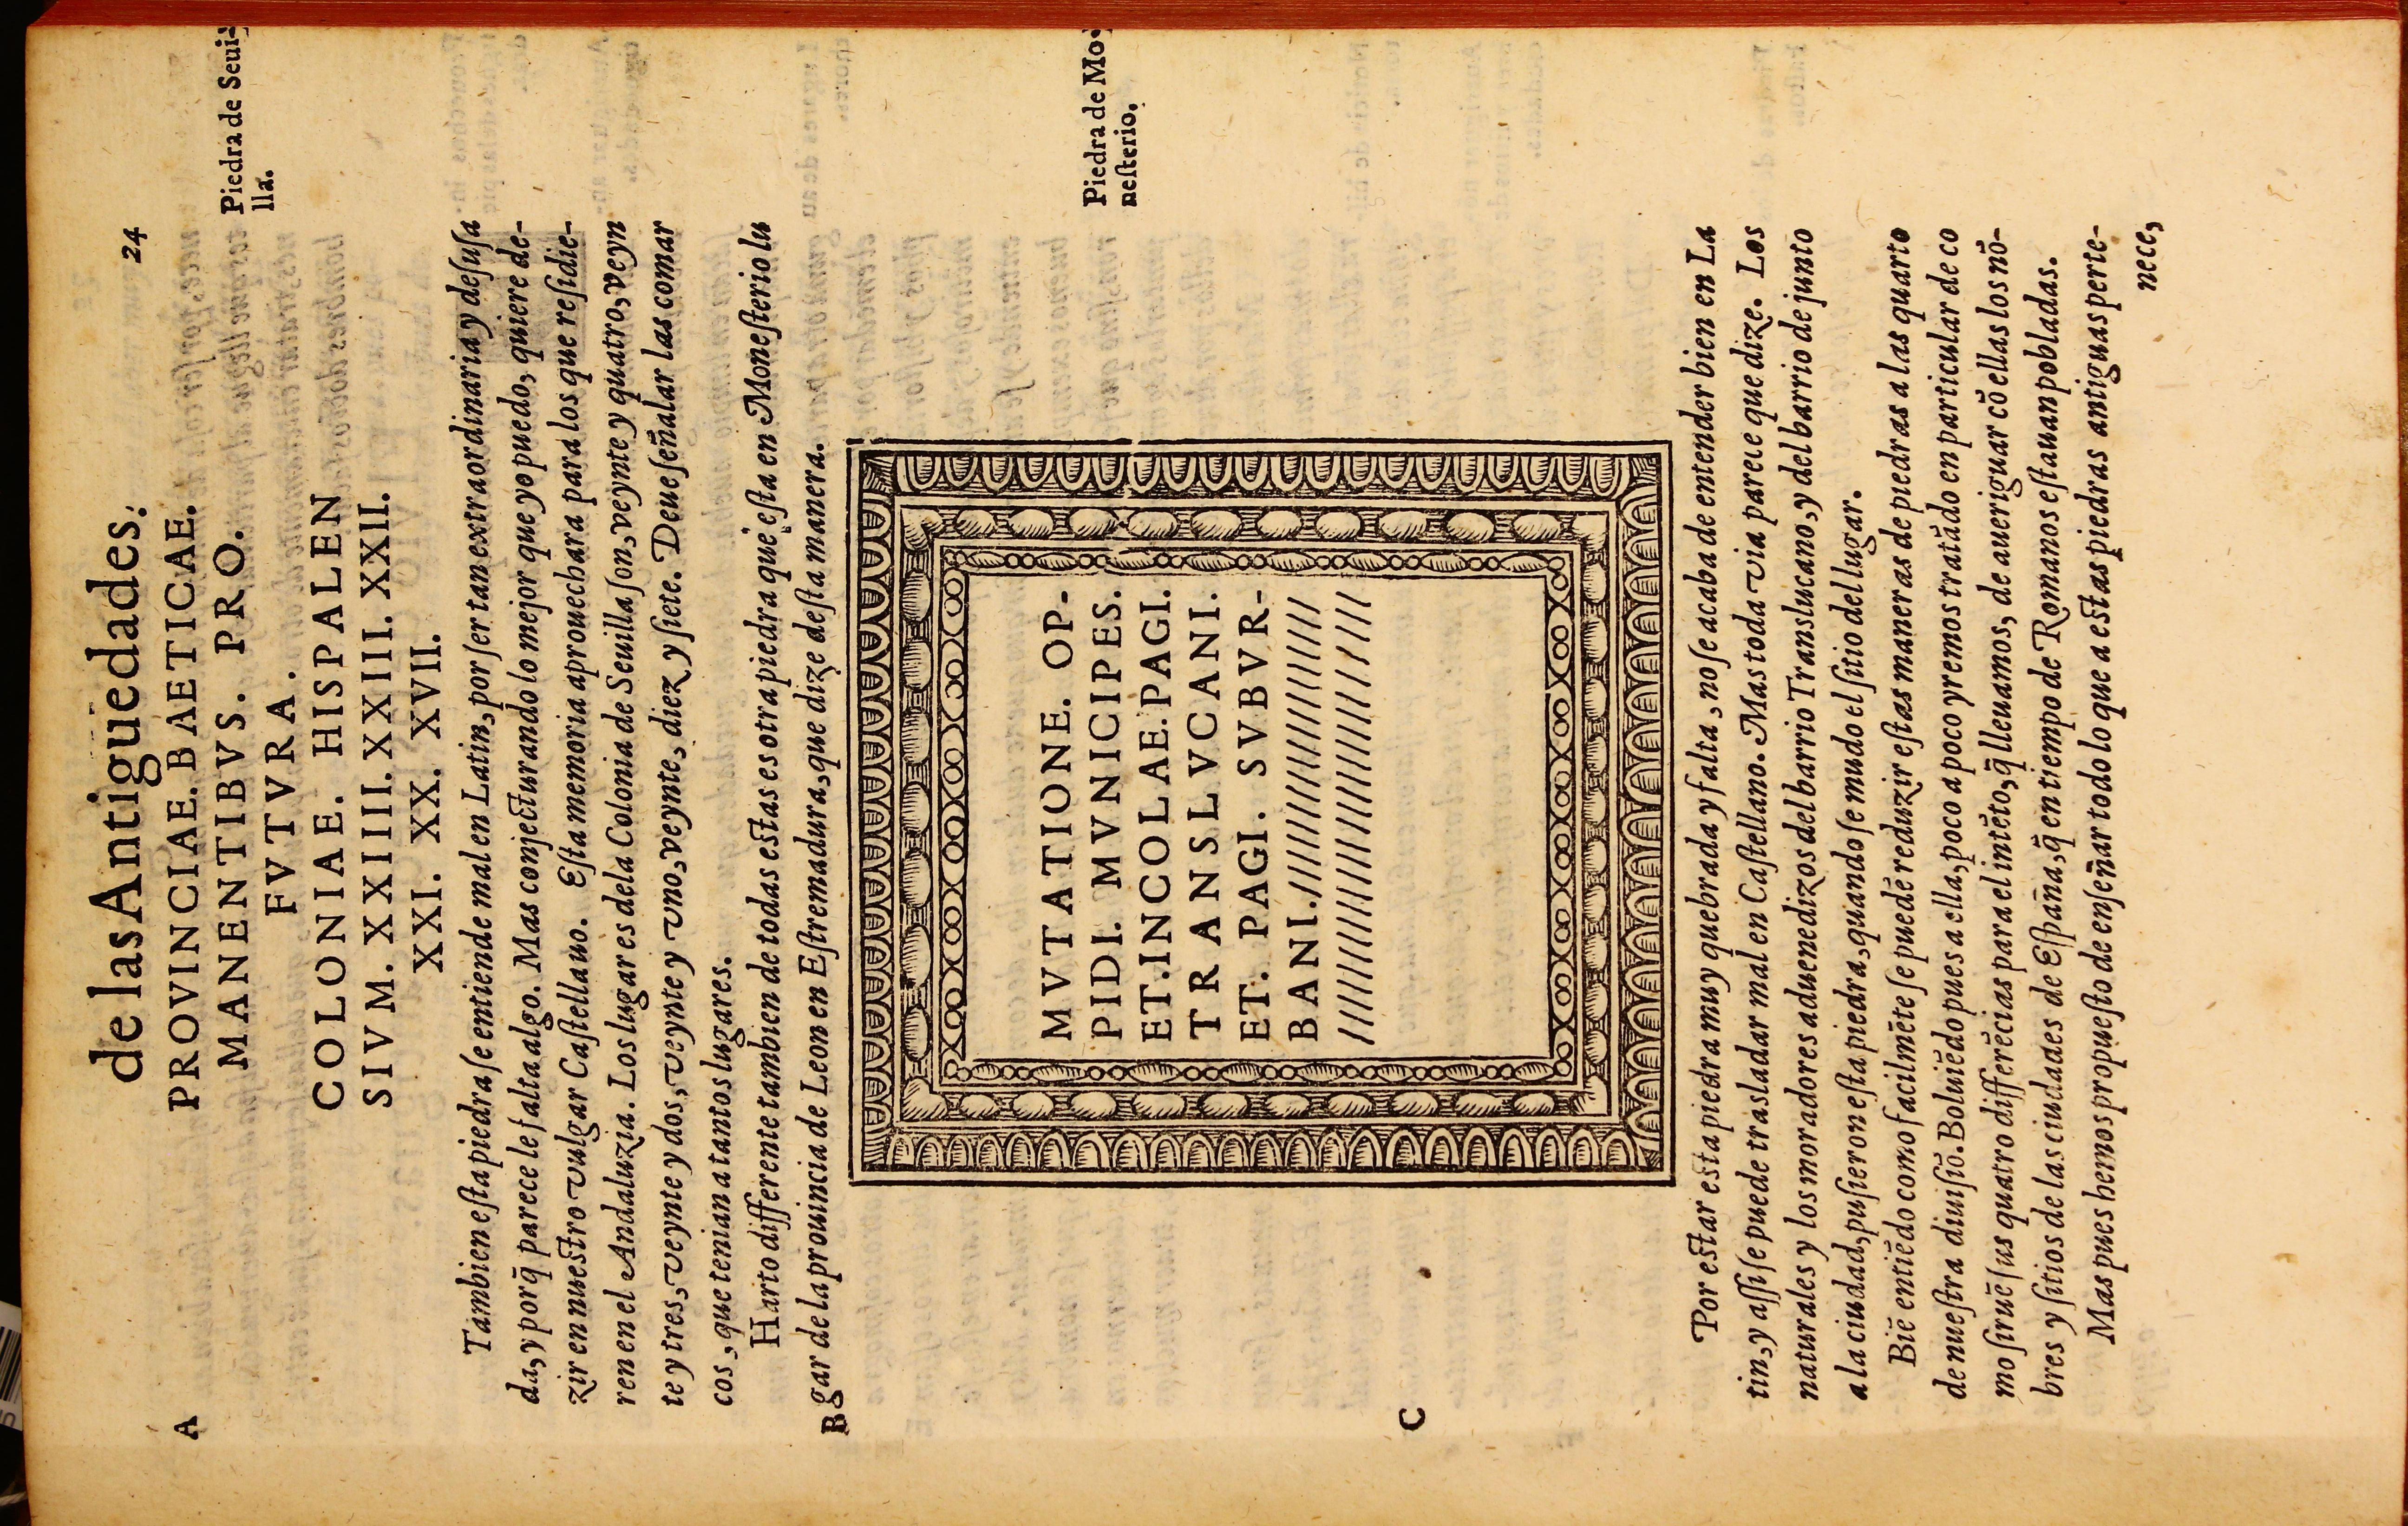 de las Antiguedades. 24
A
PROVINCIAE. BAETICAE.
Piedra de Seui-
lla.
MANENTIBVS. PRO.
FVTVRA.
COLONIAE. HISPALEN
SIVM. XXIIII. XXIII. XXII.
XXI. XX. XVII.
Tambien esta piedra se entiende mal en Latin, por ser tan extraordinaria y desusa
da, y porq̃ parece le falta algo. Mas conjecturando lo mejor que yo puedo, quiere de-
zir en nuestro vulgar Castellano. Esta memoria aprouechara para los que residie-
ren en el Andaluzia. Los lugares dela Colonia de Seuilla son, veynte y quatro, veyn
te y tres, veynte y dos, veynte y vno, veynte, diez y siete. Deue señalar las comar
cos, que tenian a tantos lugares.
Harto differente tambien de todas estas es otra piedra que esta en Monesterio lu
B
gar de la prouincia de Leon en Estremadura, que dize desta manera.
Piedra de Mo-
nesterio.
MVTATIONE. OP-
PIDI. MVNICIPES.
ET. INCOLAE. PAGI.
TRANSLVCANI.
ET. PAGI. SVBVR-
BANI.////////////////
//////////////////////
C
Por estar esta piedra muy quebrada y falta, no se acaba de entender bien en La
tin, y assi se puede trasladar mal en Castellano. Mas toda via parece que dize. Los
naturales y los moradores aduenedizos del barrio Translucano, y del barrio de junto
a la ciudad, pusieron esta piedra, quando se mudo el sitio del lugar.
Biẽ entiẽdo como facilmẽte se puedẽ reduzir estas maneras de piedras a las quatro
de nuestra diuisiõ. Boluiẽdo pues a ella, poco a poco yremos tratãdo en particular de co
mo siruẽ sus quatro differẽcias para el intẽto, q̃ lleuamos, de aueriguar cõ ellas los nõ-
bres y sitios de las ciudades de España, q̃ en tiempo de Romanos estauan pobladas.
Mas pues hemos propuesto de enseñar todo lo que a estas piedras antiguas perte-
nece,